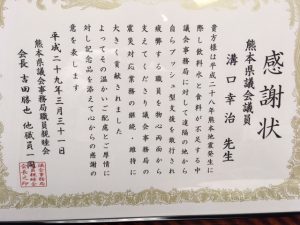 感謝状
熊本県議会議員
溝口幸治 先生
貴方様は平成二十八年熊本地震発生に
際し飲料水と食料が不足する中
議会事務局に対して遠隔の地から
自らプッシュ型支援を敢行され
疲弊する職員を物心両面から
支えてくださり議会事務局の
震災対応業務の継続・維持に
大きく貢献されました
よってその温かいご配慮とご厚情に
対し記念品を添えて心からの感謝の
意を表します
平成二十九年三月三十一日
熊本県議会事務局職員親睦会
会長 吉田勝也 他職員一同